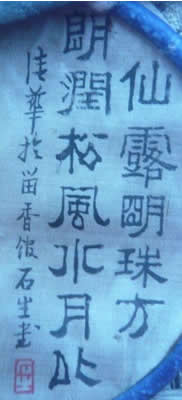 仙露明珠方
朗潤松風水月比
清華於留香館石生書